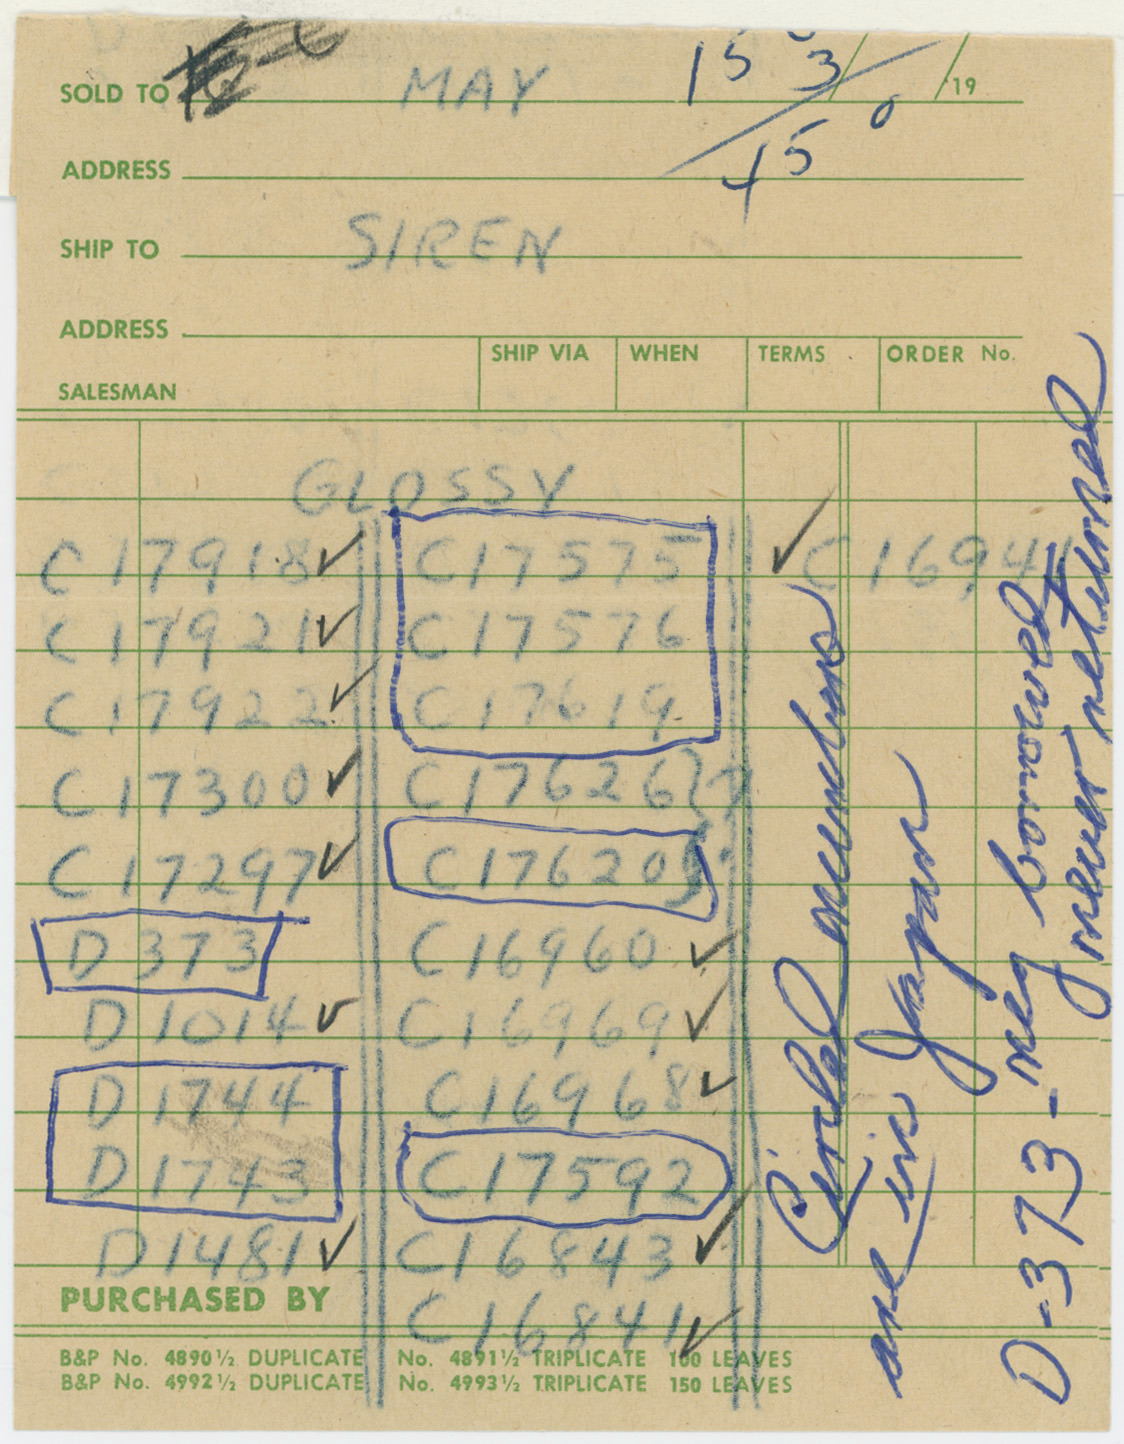 SOLD TO MAY 15 3 / /19
45 0
ADDRESS
SHIP TO SIREN
ADDRESS
SHIP VIA WHEN TERMS ORDER No.
SALESMAN
GLOSSY
C17918✓ C17575 ✓ C1694
C17921✓ C17576
C17922✓ C17619
C17300✓ C17626 } ?
C17297✓ C17620
D373 C16960 ✓
D1014 ✓ C16969 ✓
D1744 C16968 ✓
D1743 C17592
D1481 ✓ C16843 ✓
PURCHASED BY
C16841 ✓
B&P No. 4890½ DUPLICATE No. 4891½ TRIPLICATE 100 LEAVES
B&P No. 4992½ DUPLICATE No. 4993½ TRIPLICATE 150 LEAVES
Circled numbers
are in Japan
D-373 - neg borrowed
never returned